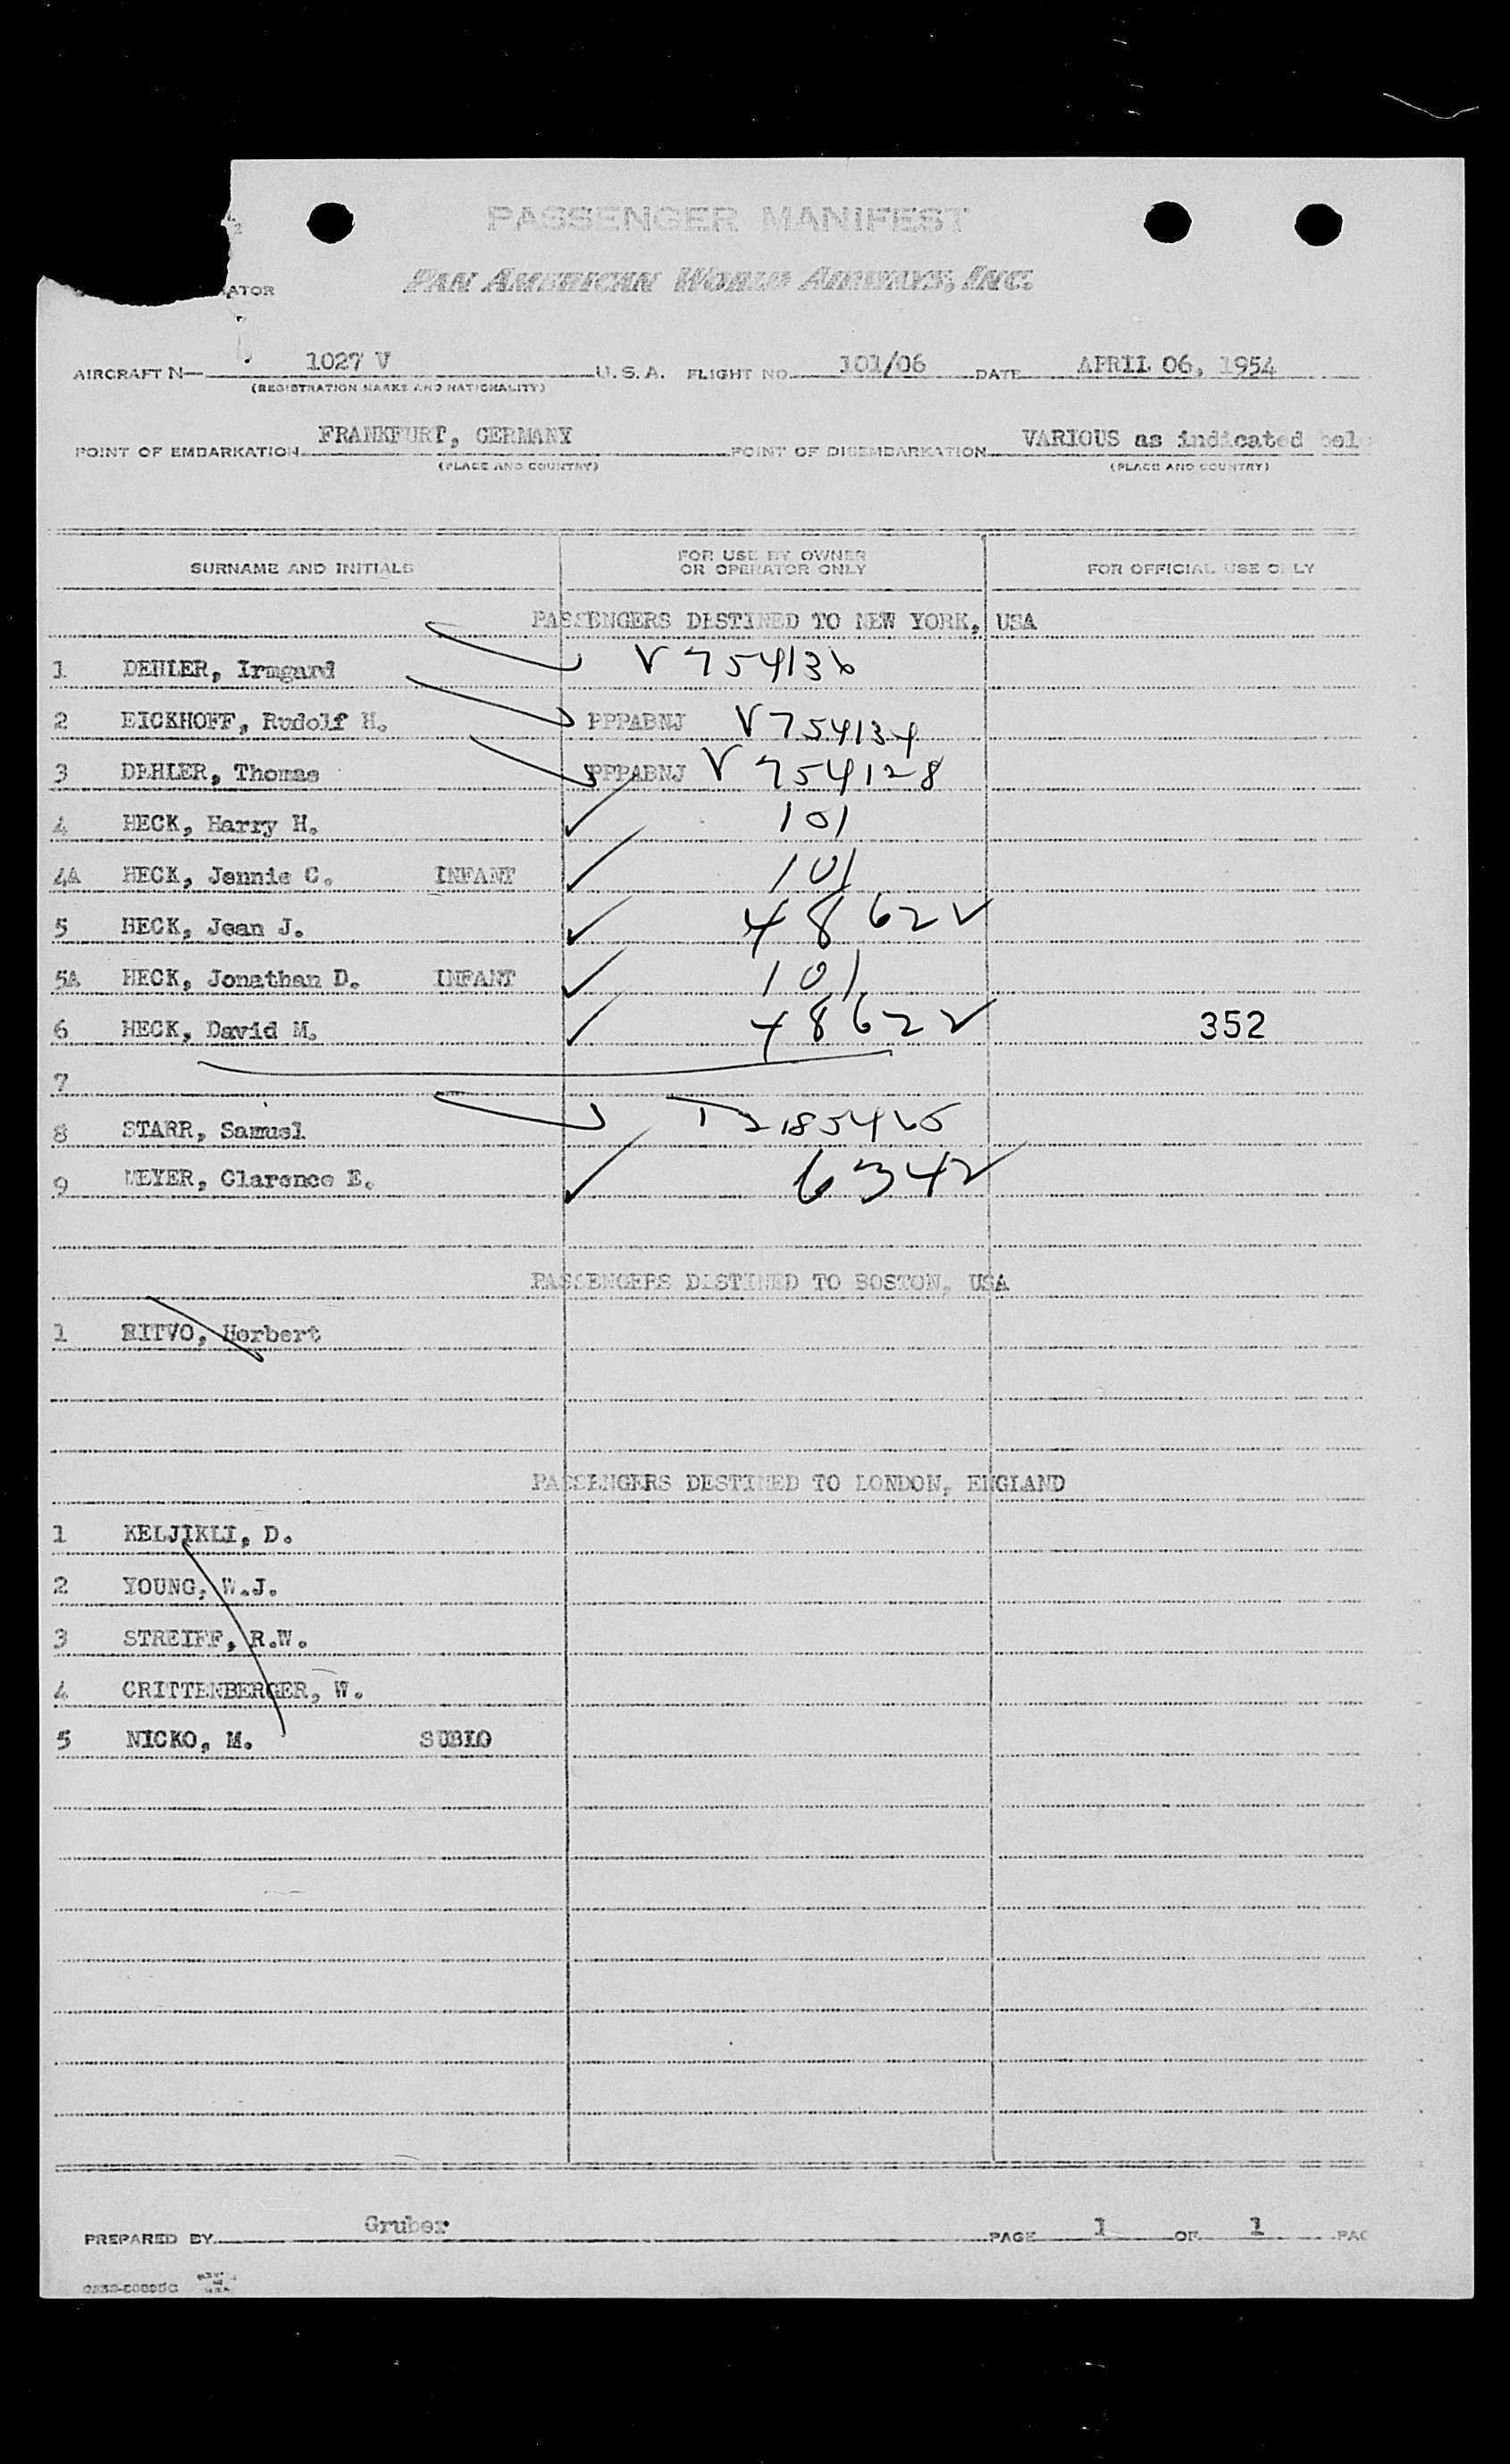 ATOR
PASSENGER MANIFEST
PAN AMERICAN WORLD AIRWAYS, INC.
AIRCRAFT N— 1027 V U. S. A. FLIGHT NO. 101/06 DATE APRIL 06, 1954
(REGISTRATION MARKS AND NATIONALITY)
POINT OF EMBARKATION FRANKFURT, GERMANY POINT OF DISEMBARKATION VARIOUS as indicated belo
(PLACE AND COUNTRY) (PLACE AND COUNTRY)
SURNAME AND INITIALS FOR USE BY OWNER OR OPERATOR ONLY FOR OFFICIAL USE ONLY
PASSENGERS DESTINED TO NEW YORK, USA
1 DEHLER, Irmgard V 754136
2 EICKHOFF, Rudolf H. PPPABNJ V 754134
3 DEHLER, Thomas PPPABNJ V 754128
4 HECK, Harry H. ✓ 101
4A HECK, Jennie C. INFANT ✓ 101
5 HECK, Jean J. ✓ 48622
5A HECK, Jonathan D. INFANT ✓ 101
6 HECK, David M. ✓ 48622 352
7
8 STARR, Samuel
9 MEYER, Clarence E. ✓ 6342
PASSENGERS DESTINED TO BOSTON, USA
1 RITVO, Herbert
PASSENGERS DESTINED TO LONDON, ENGLAND
1 KELJIKLI, D.
2 YOUNG, W.J.
3 STREIFF, R.W.
4 CRITTENBERGER, W.
5 NICKO, M. SUBLO
PREPARED BY Gruber PAGE 1 OF 1 PAG